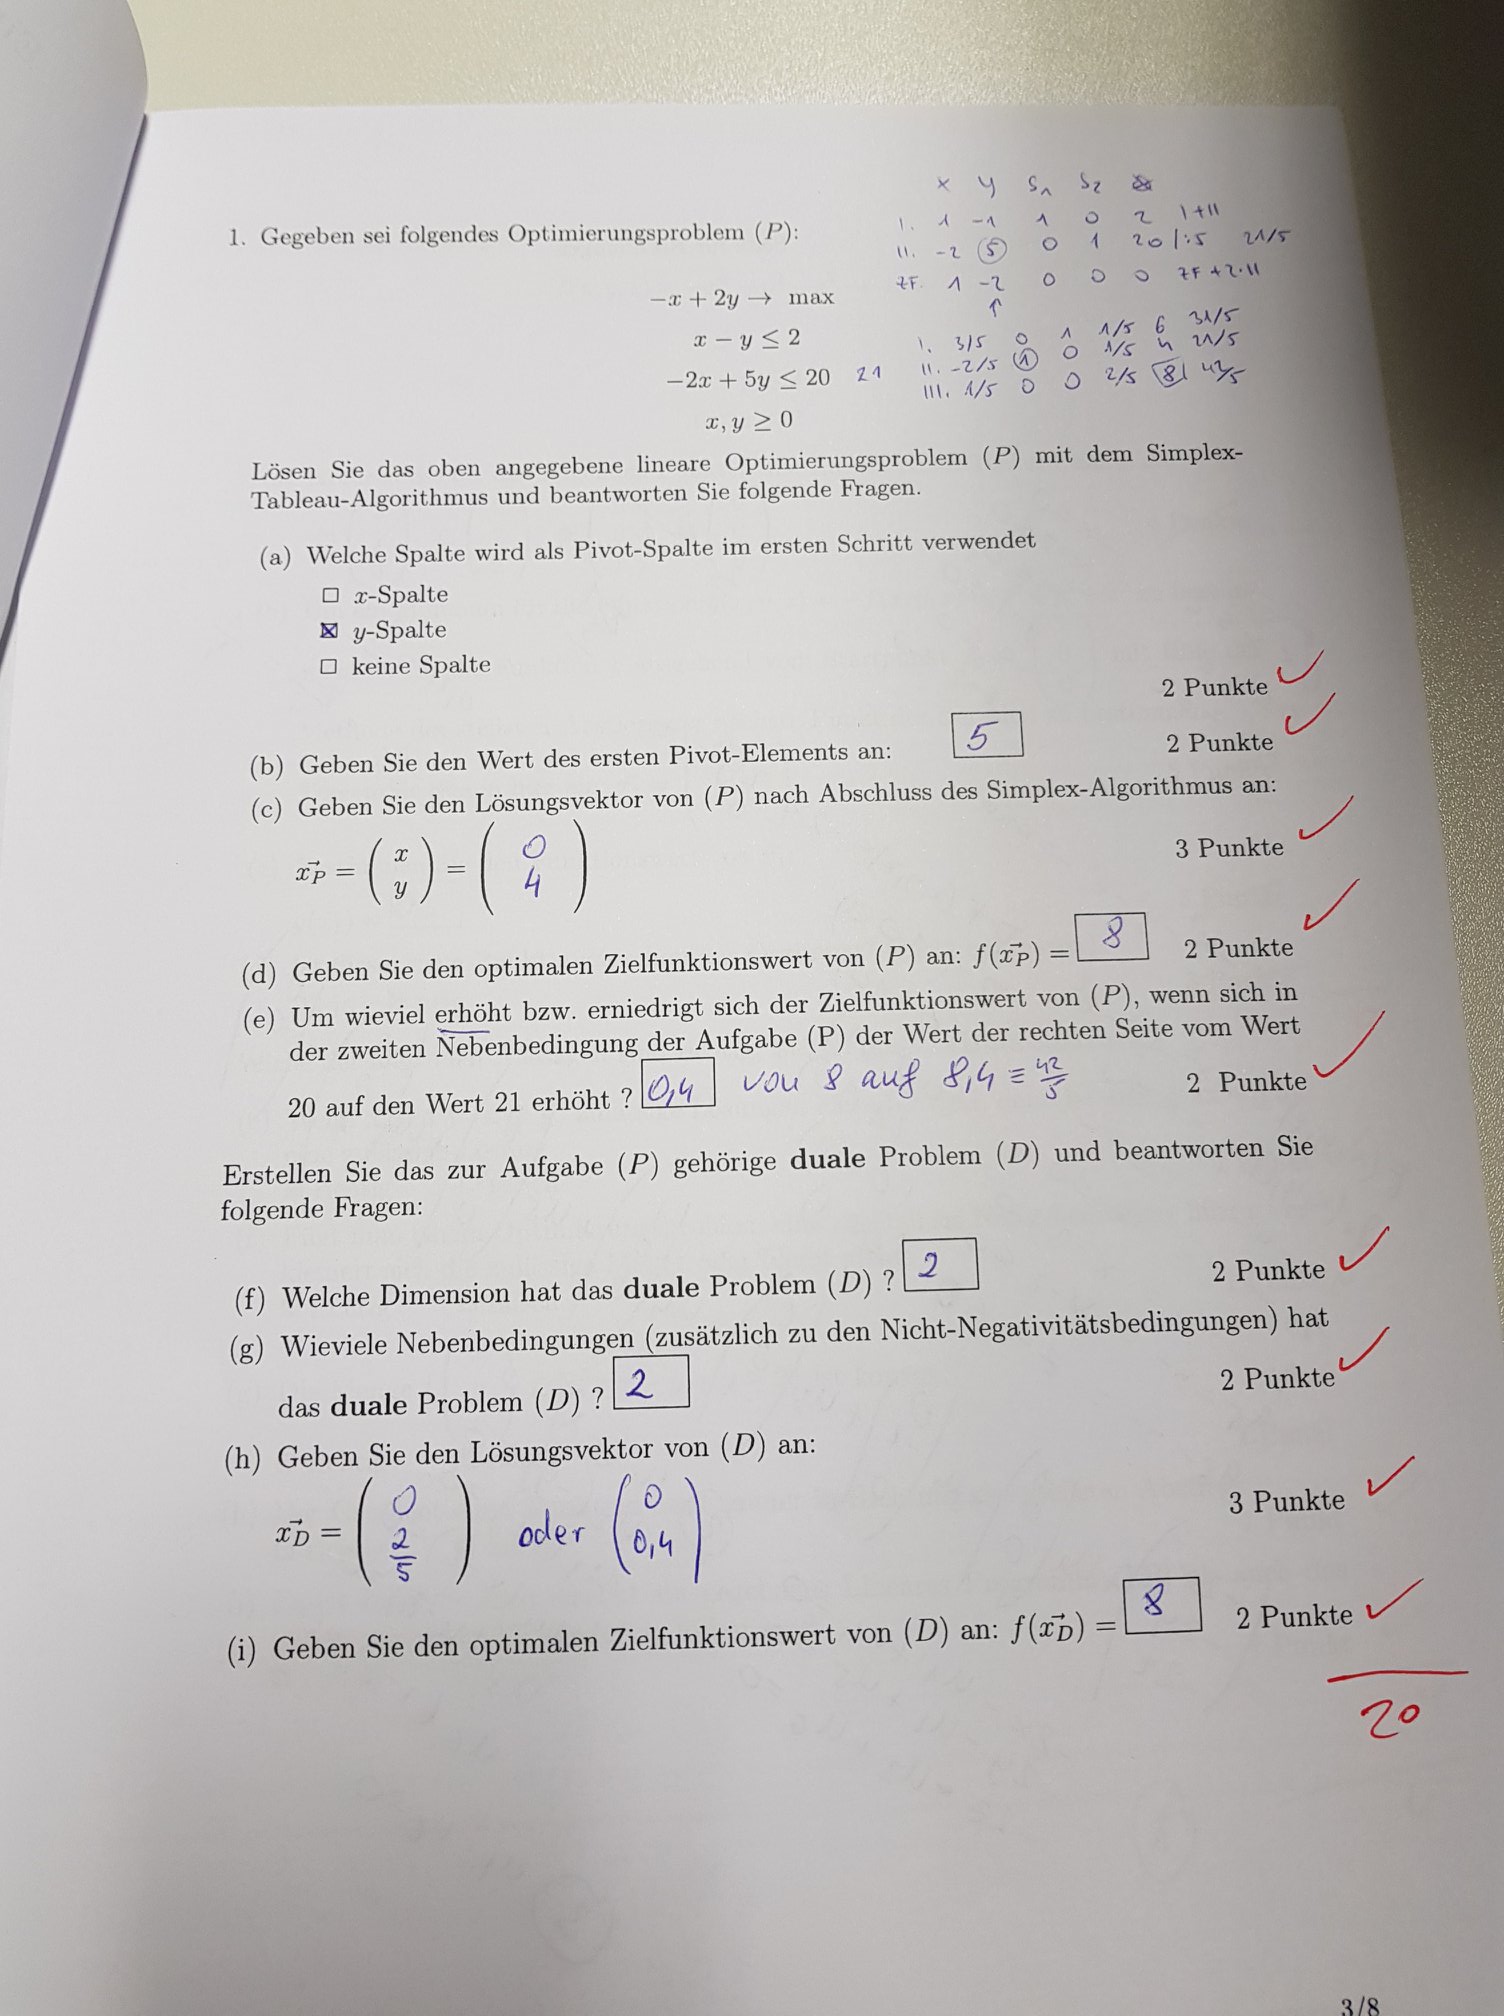 x y S₁ S₂
I. 1 -1 1 0 2 I+II
1. Gegeben sei folgendes Optimierungsproblem (P):
II. -2 5 0 1 20 |:5 21/5
ZF. 1 -2 0 0 0 ZF+2·II
↑
−x + 2y → max
I. 3/5 0 1 1/5 6 31/5
x − y ≤ 2
II. -2/5 1 0 1/5 4 21/5
−2x + 5y ≤ 20 21
III. 1/5 0 0 2/5 8 42/5
x, y ≥ 0
Lösen Sie das oben angegebene lineare Optimierungsproblem (P) mit dem Simplex-
Tableau-Algorithmus und beantworten Sie folgende Fragen.
(a) Welche Spalte wird als Pivot-Spalte im ersten Schritt verwendet
☐ x-Spalte
☒ y-Spalte
☐ keine Spalte
2 Punkte ✓
(b) Geben Sie den Wert des ersten Pivot-Elements an: 5 2 Punkte ✓
(c) Geben Sie den Lösungsvektor von (P) nach Abschluss des Simplex-Algorithmus an:
x⃗_P = (x y) = (0 4) 3 Punkte ✓
(d) Geben Sie den optimalen Zielfunktionswert von (P) an: f(x⃗_P) = 8 2 Punkte ✓
(e) Um wieviel erhöht bzw. erniedrigt sich der Zielfunktionswert von (P), wenn sich in
der zweiten Nebenbedingung der Aufgabe (P) der Wert der rechten Seite vom Wert
20 auf den Wert 21 erhöht ? 0,4 von 8 auf 8,4 ≡ 42/5 2 Punkte ✓
Erstellen Sie das zur Aufgabe (P) gehörige duale Problem (D) und beantworten Sie
folgende Fragen:
(f) Welche Dimension hat das duale Problem (D) ? 2 2 Punkte ✓
(g) Wieviele Nebenbedingungen (zusätzlich zu den Nicht-Negativitätsbedingungen) hat
das duale Problem (D) ? 2 2 Punkte ✓
(h) Geben Sie den Lösungsvektor von (D) an:
x⃗_D = (0 2/5) oder (0 0,4) 3 Punkte ✓
(i) Geben Sie den optimalen Zielfunktionswert von (D) an: f(x⃗_D) = 8 2 Punkte ✓
20
3/8